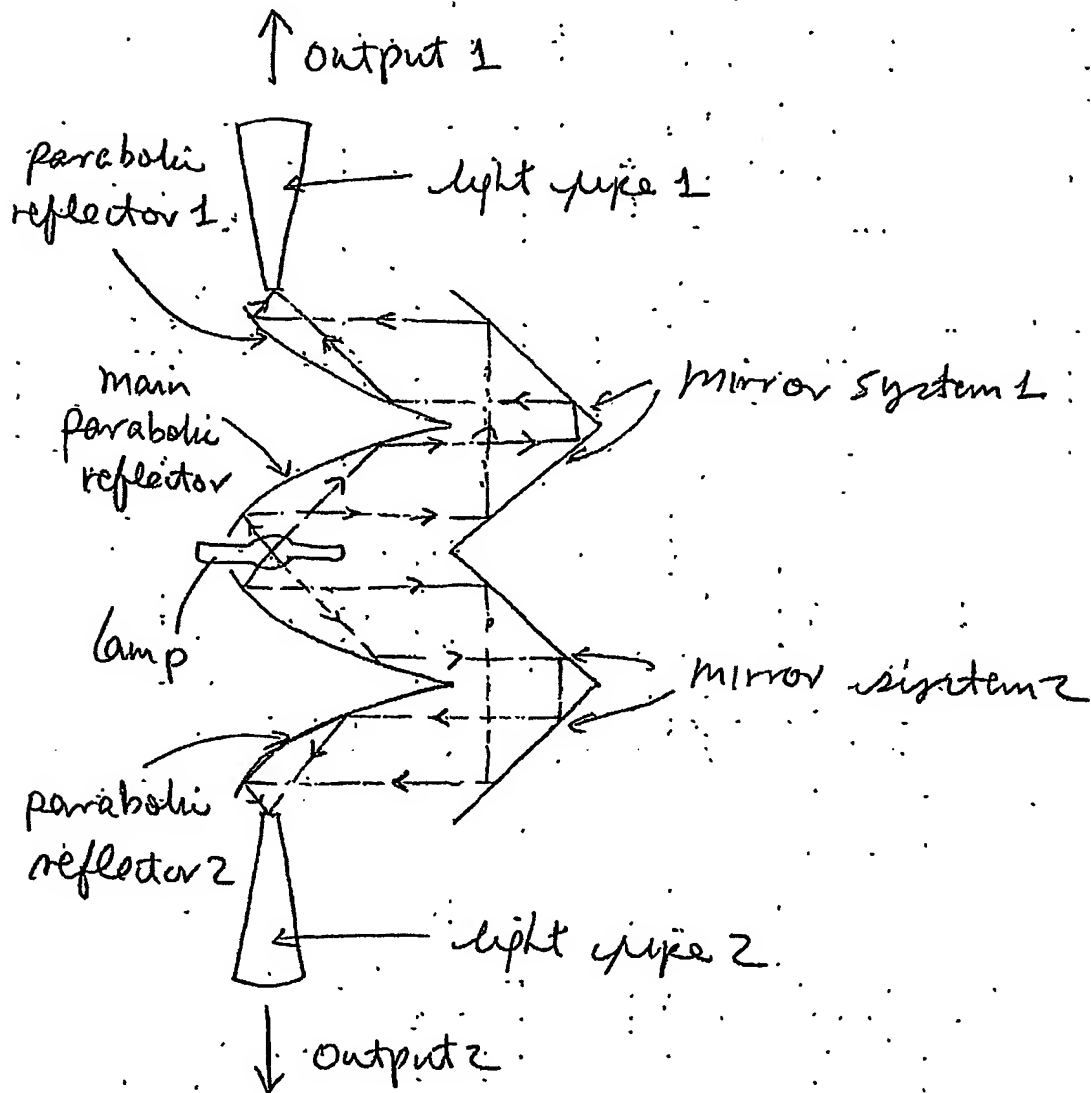 Output 1
parabolic
reflector 1
light pipe 1
main
parabolic
reflector
mirror system 1
lamp
mirror system 2
parabolic
reflector 2
light pipe 2
Output 2